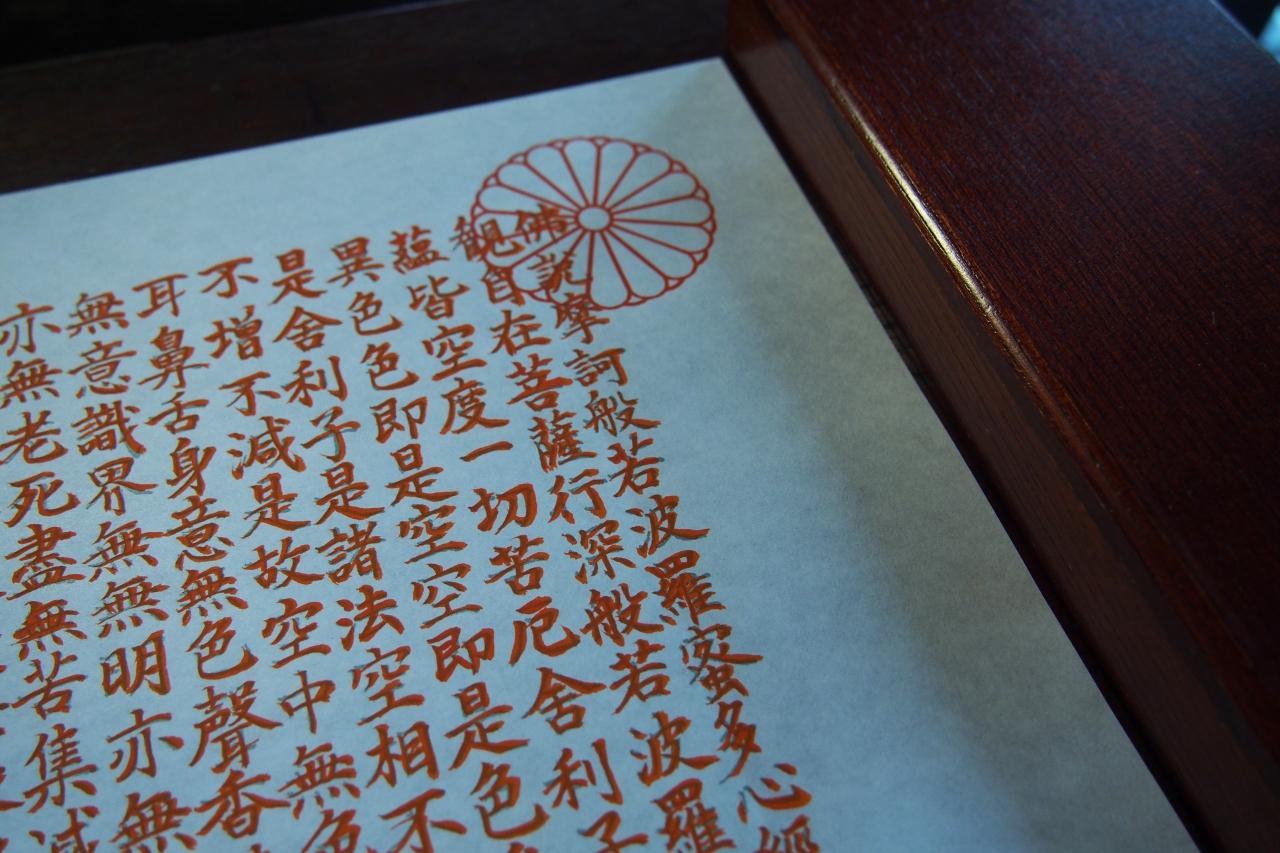 佛説摩訶般若波羅蜜多心經
觀自在菩薩行深般若波羅
蘊皆空度一切苦厄舍利子
異色色即是空空即是色
是舍利子是諸法空相不
不增不減是故空中無色
耳鼻舌身意無色聲香
無意識界無無明亦無
亦無老死盡無苦集滅